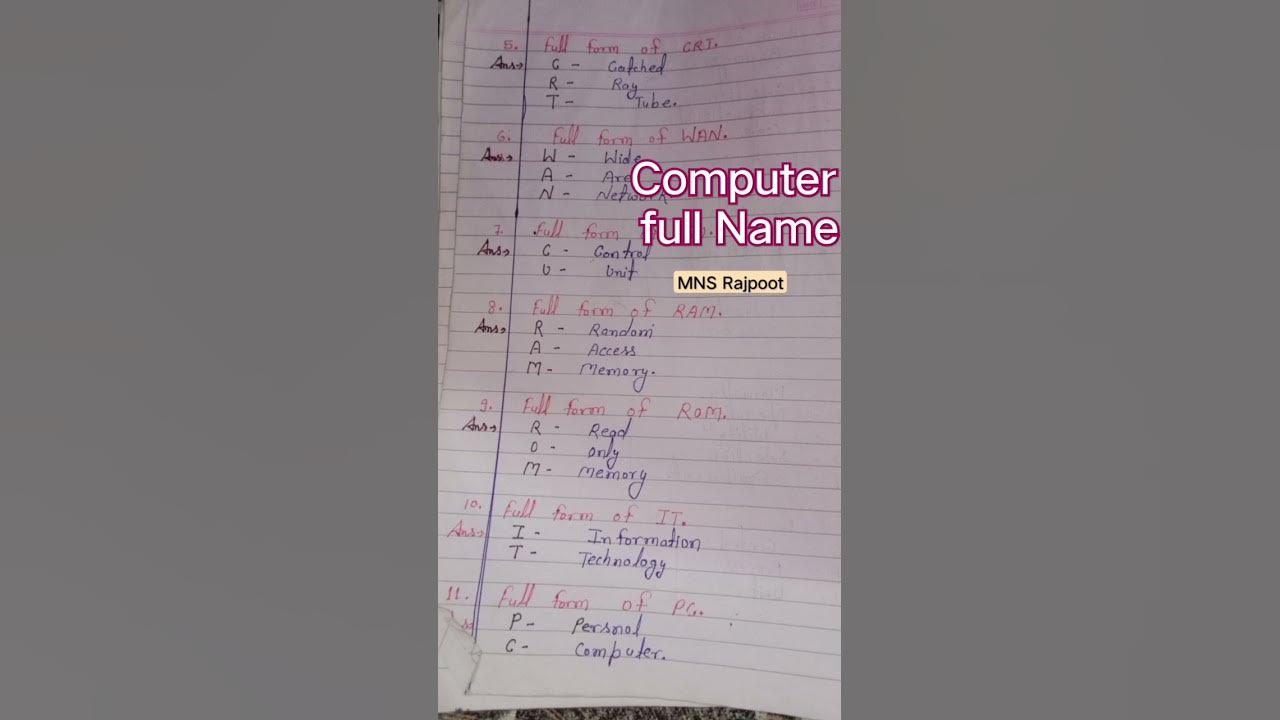 5. Full form of CRT.
Ans→ C - Cathed
R - Ray
T - Tube.
6. Full form of WAN.
Ans→ W - Wide
A - Are
N - Network
Computer
full Name
7. Full form
Ans→ C - Control
U - Unit
MNS Rajpoot
8. Full form of RAM.
Ans→ R - Random
A - Access
M - Memory.
9. Full form of ROM.
Ans→ R - Read
O - only
M - Memory
10. Full form of IT.
Ans→ I - Information
T - Technology
11. Full form of PC.
P - Persnol
C - Computer.